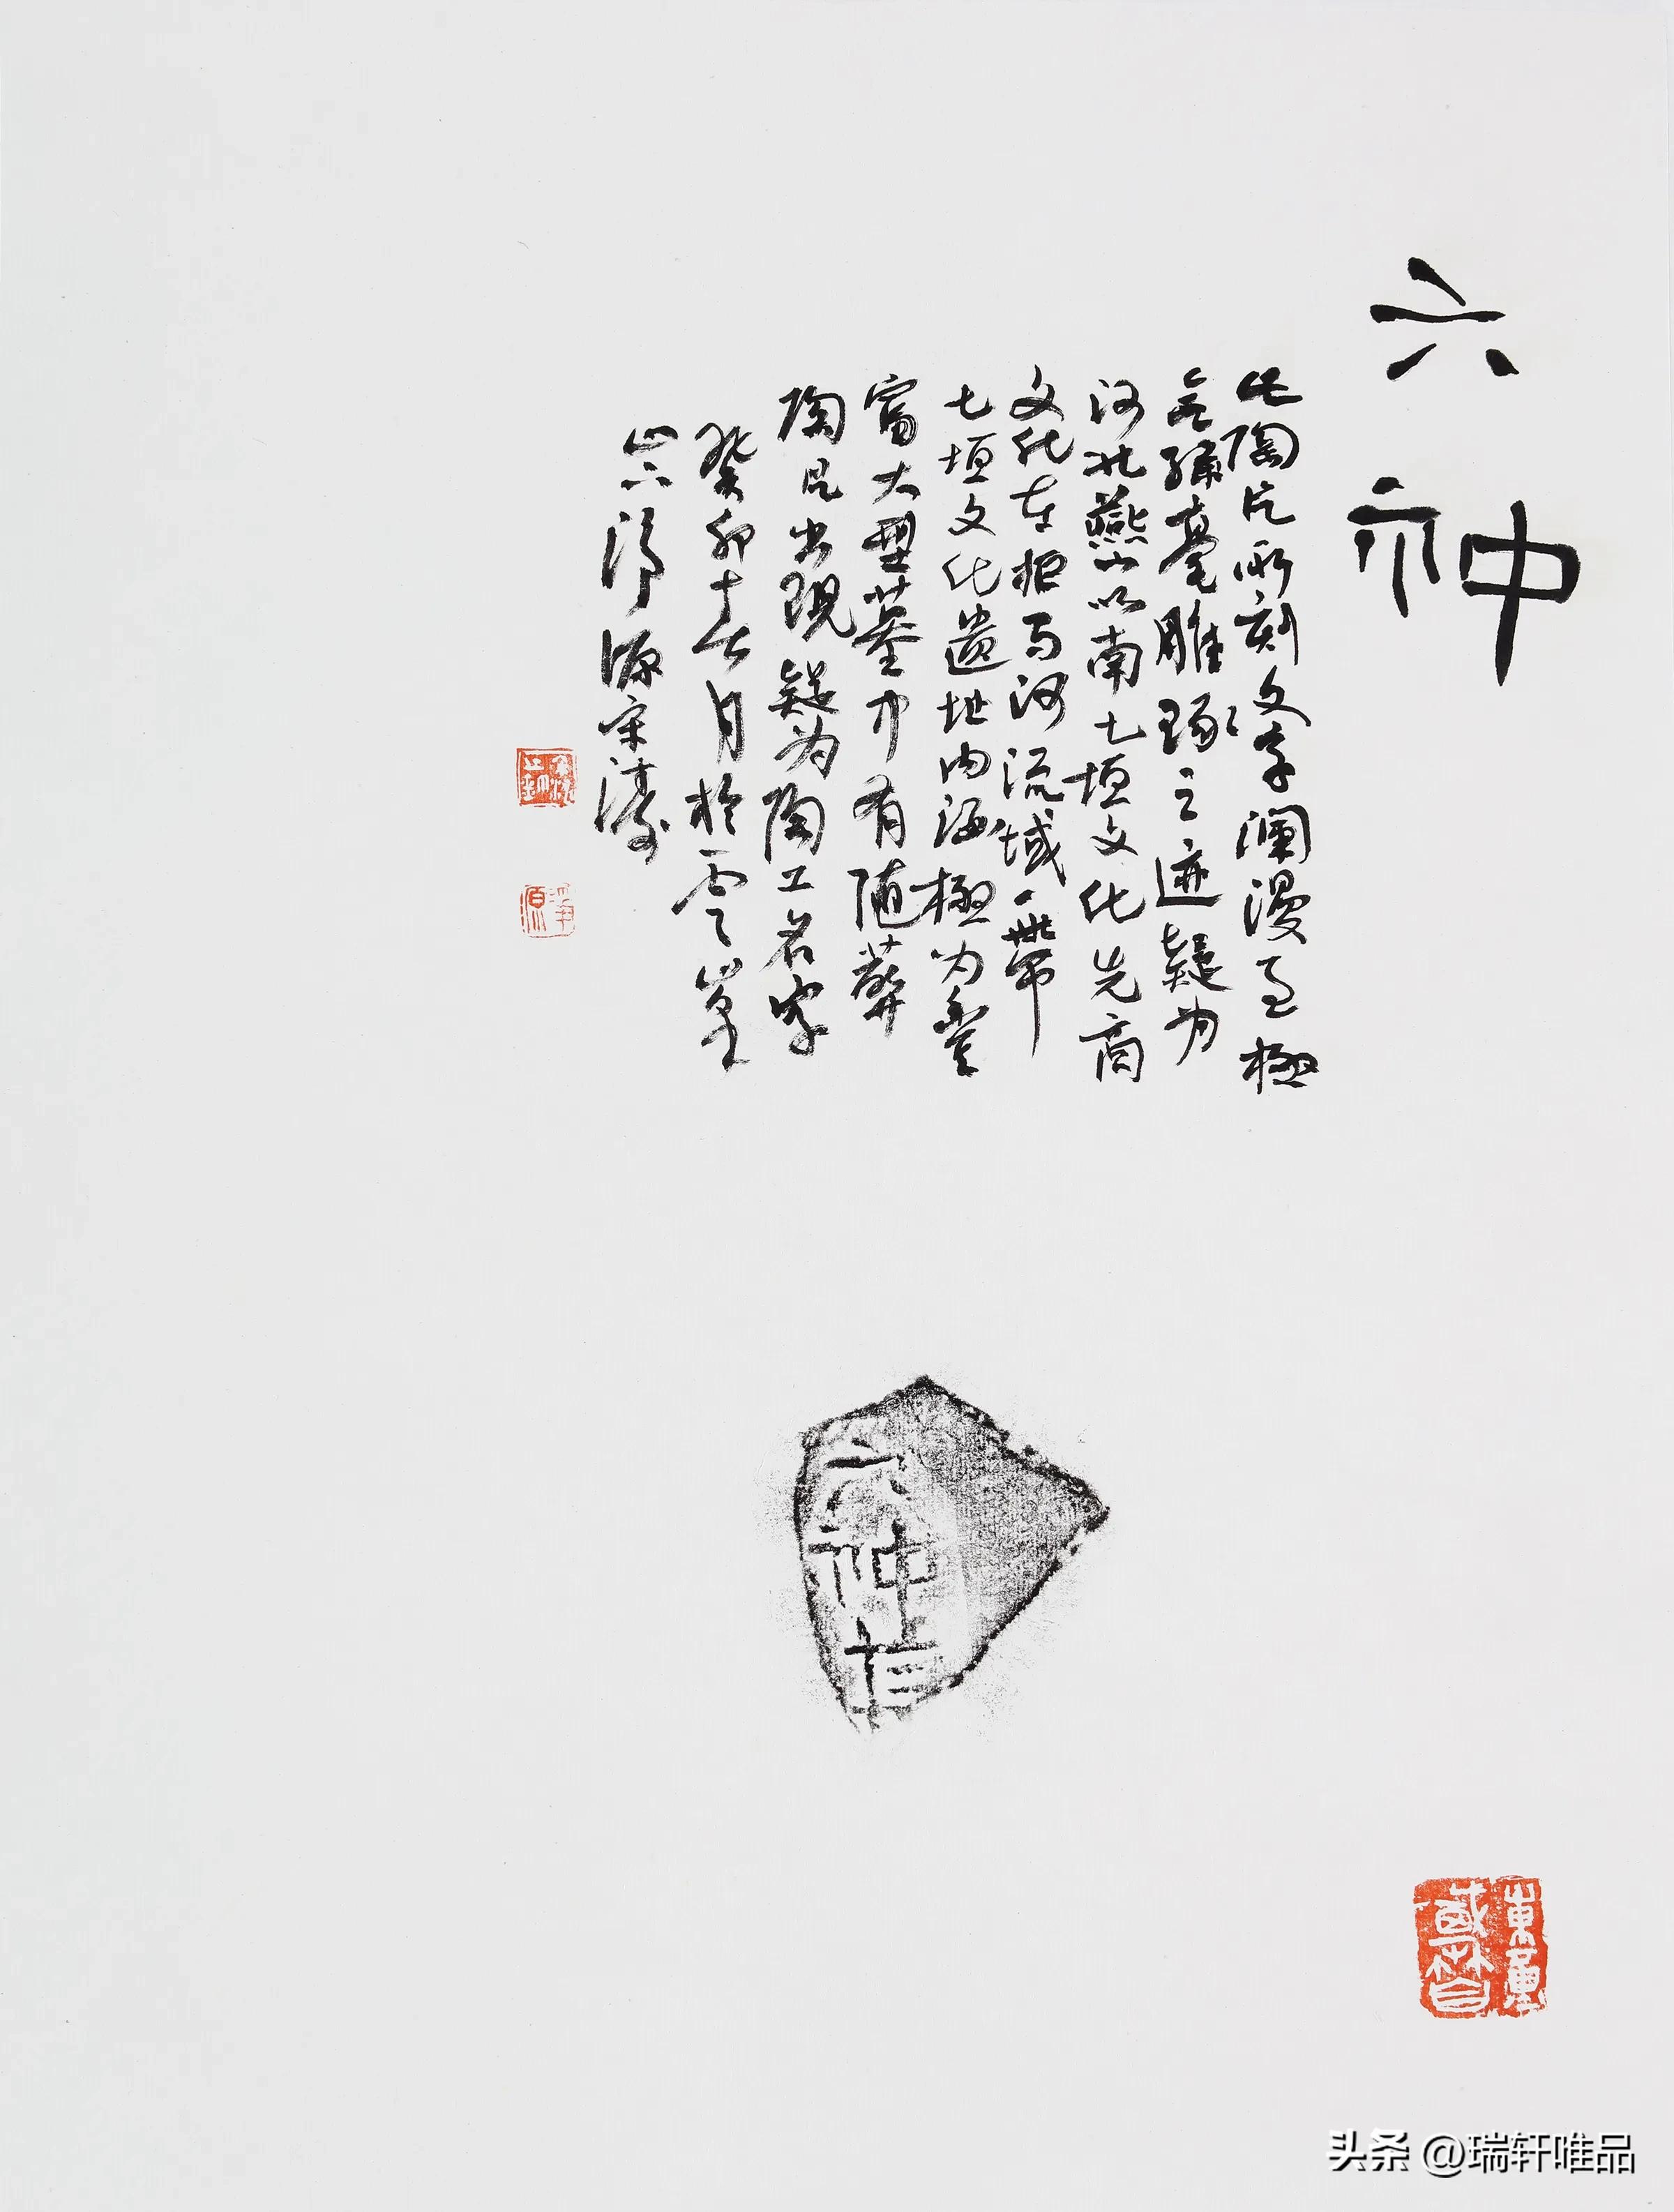 六神
此陶片所刻文字瀾漫至極
无絲毫雕琢之迹疑为
河北燕山以南七垣文化先商
文化在拒马河流域一带
七垣文化遗址内海極为豐
富大型墓中有随葬
陶片出现疑为陶工名字
癸卯十月於雲崖
六净源宋涛
六神
净源
头条 @瑞轩唯品